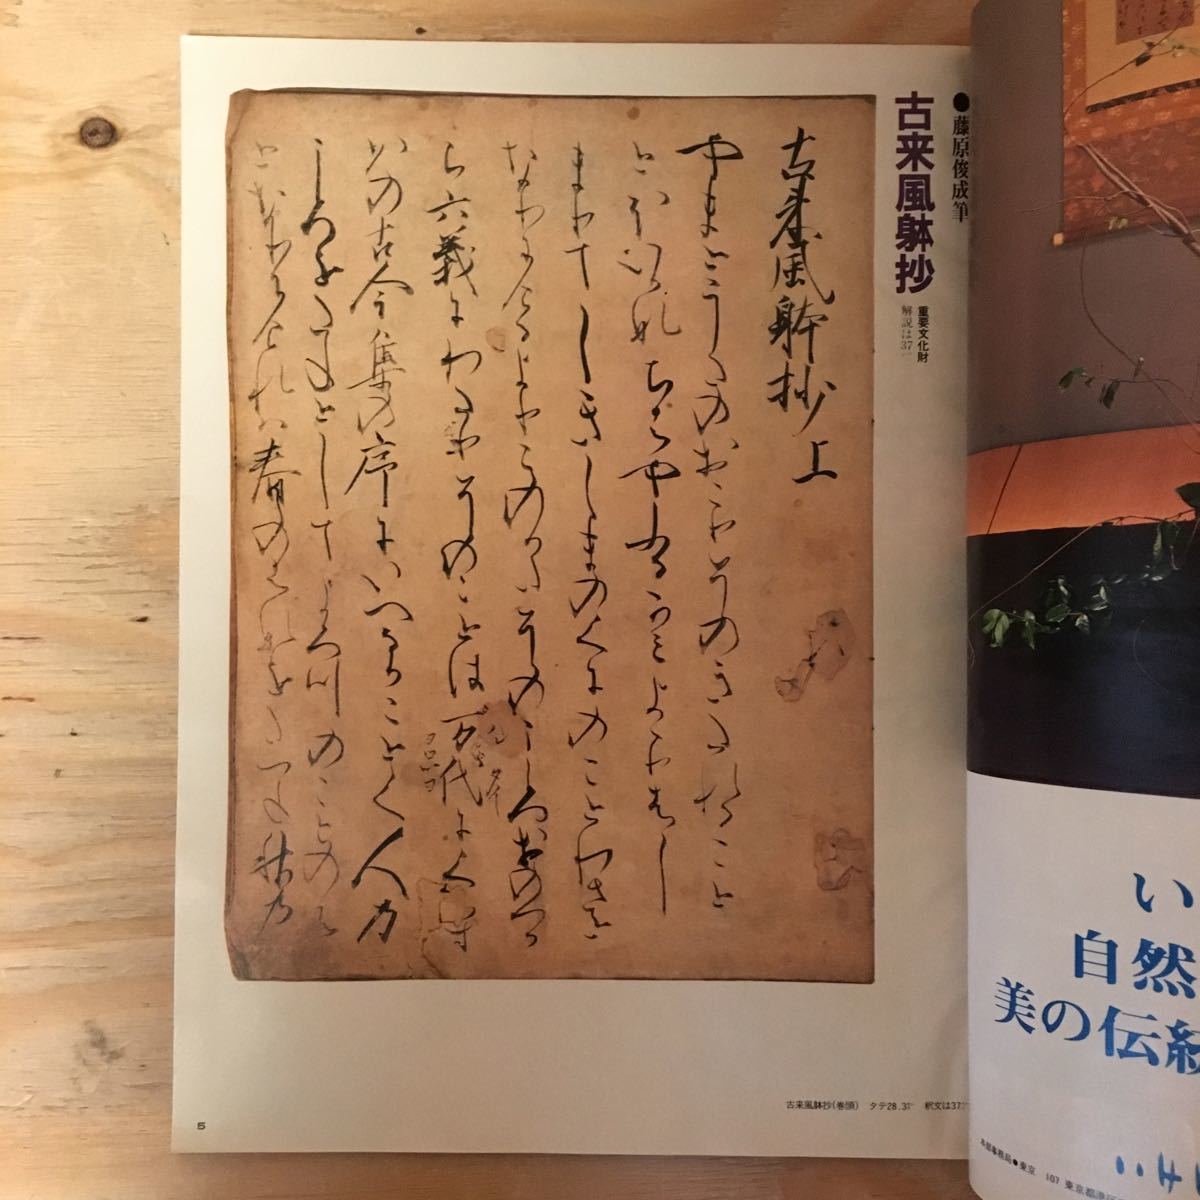 ●藤原俊成筆
古来風躰抄
重要文化財
解説は37
古来風躰抄上
やまとうたのおこりそのきたれること
とほいかなちはやふるかみよゝりはし
まりてしきしまのくにのことわさと
なりにけるよりこのかたそのこゝろおのつか
ら六義にわたりそのことは万代にくちす
かの古今集の序にいへるかことく人の
こゝろをたねとしてよろつのことのは
となりにけれは春のはなをたつね秋の
古来風躰抄(巻頭) タテ28.3 釈文は37
5
い
自然
美の伝統
本部事務局●東京 107 東京都港区